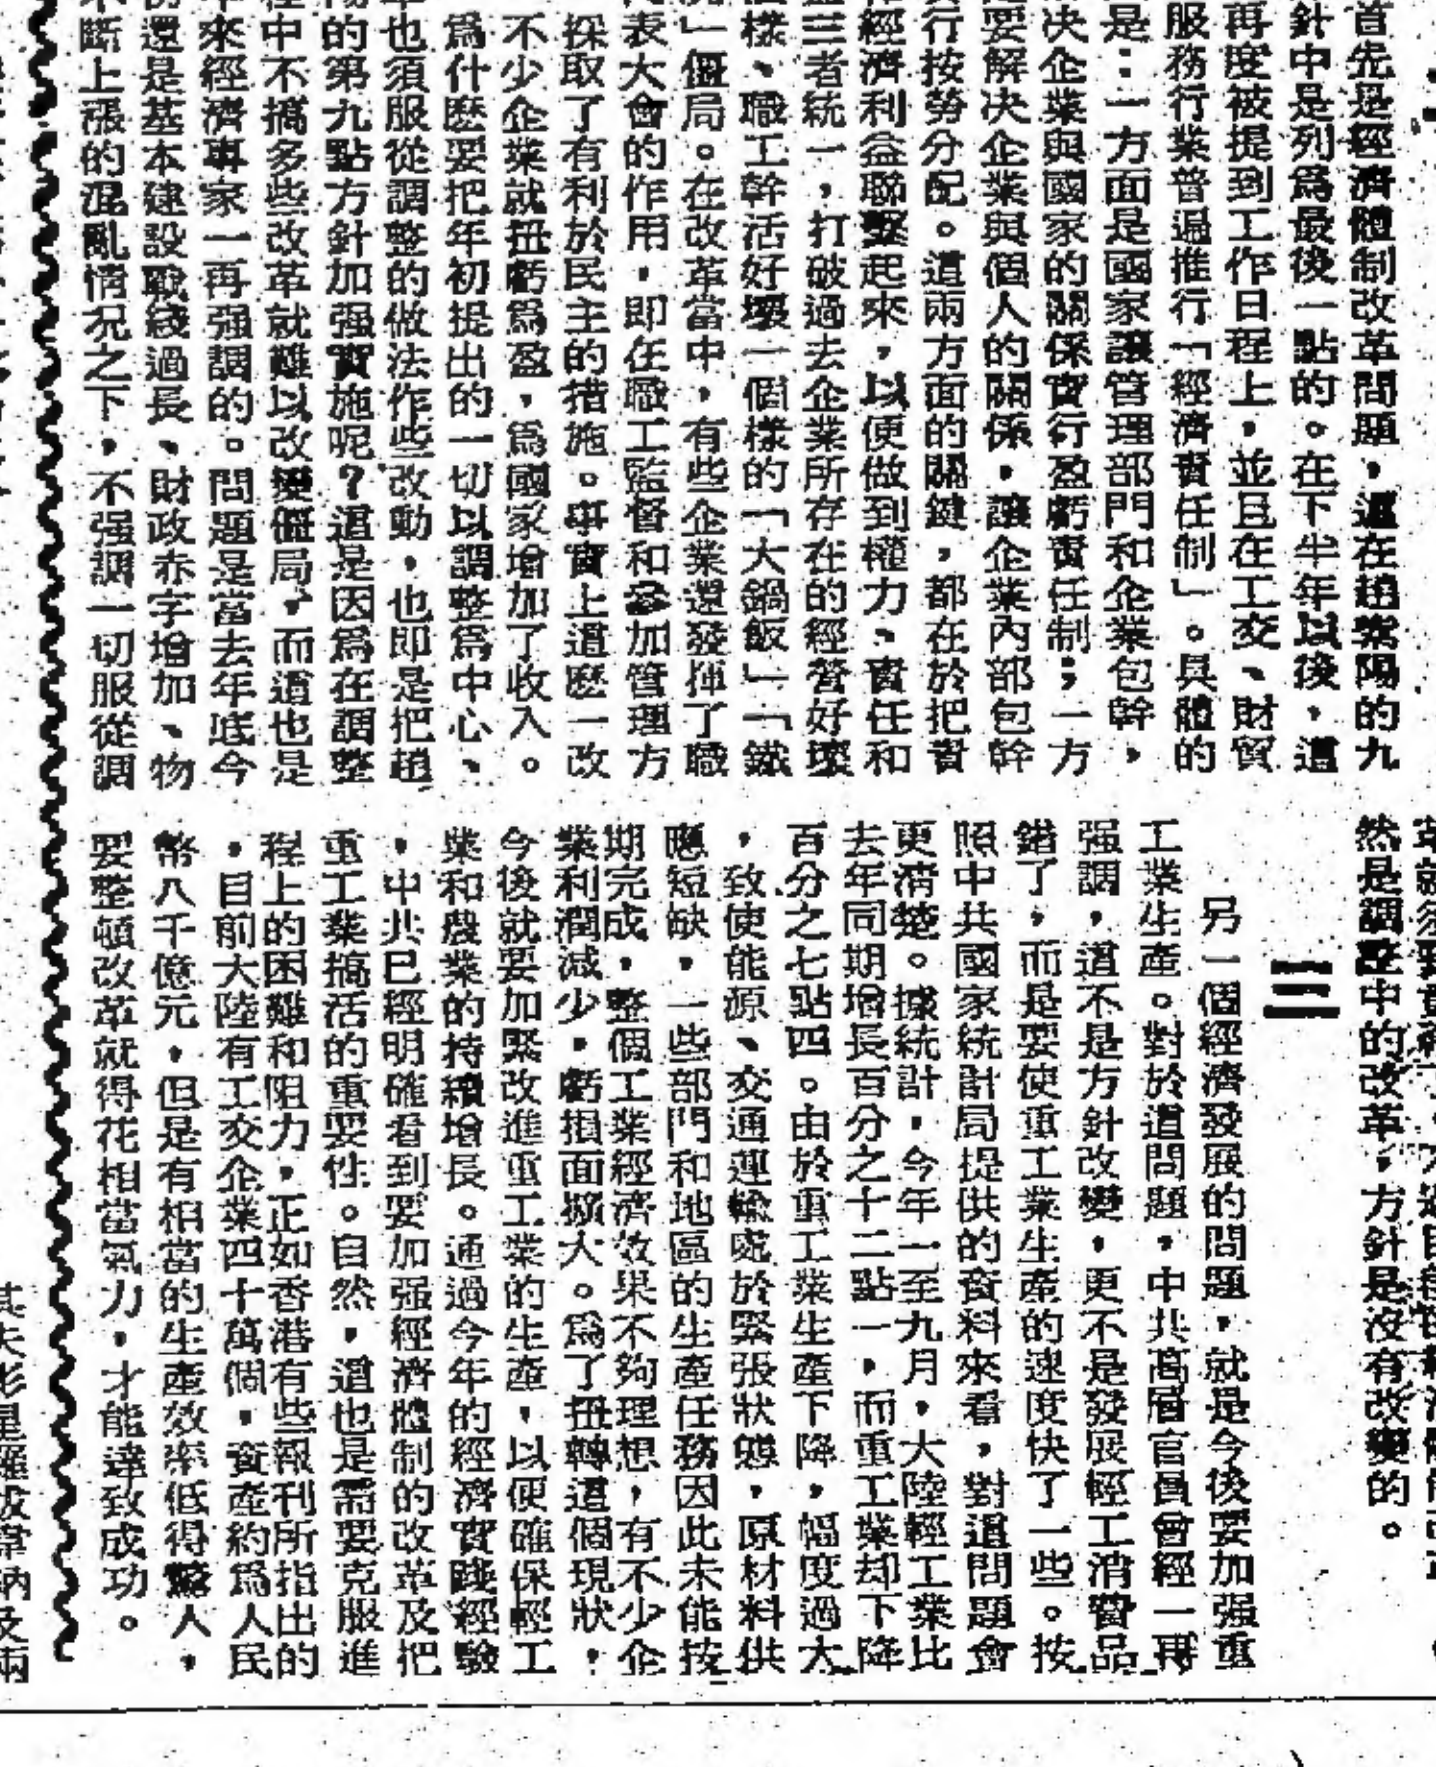 首先是經濟體制改革問題，這在趙紫陽的九
針中是列爲最後一點的。在下半年以後，這
再度被提到工作日程上，並且在工交、財貿
服務行業普遍推行「經濟責任制」。具體的
是：一方面是國家讓管理部門和企業包幹，
决企業與國家的關係實行盈虧責任制；一方
要解决企業與個人的關係，讓企業內部包幹
行按勞分配。這兩方面的關鍵，都在於把責
經濟利益聯繫起來，以便做到權力、責任和
三者統一，打破過去企業所存在的經營好壞
樣、職工幹活好壞一個樣的「大鍋飯」「鐵
」僵局。在改革當中，有些企業還發揮了職
表大會的作用，即在職工監督和參加管理方
採取了有利於民主的措施。事實上這麽一改
不少企業就扭虧爲盈，爲國家增加了收入。
爲什麽要把年初提出的一切以調整爲中心、
也須服從調整的做法作些改動，也即是把趙
的第九點方針加强實施呢？這是因爲在調整
中不搞多些改革就難以改變僵局，而這也是
來經濟專家一再强調的。問題是當去年底今
還是基本建設戰綫過長、財政赤字增加、物
斷上漲的混亂情况之下，不强調一切服從調
然是調整中的改革，方針是沒有改變的。
三
另一個經濟發展的問題，就是今後要加强重
工業生產。對於這問題，中共高層官員曾經一再
强調，這不是方針改變，更不是發展輕工消費品
錯了，而是要使重工業生產的速度快了一些。按
照中共國家統計局提供的資料來看，對這問題會
更清楚。據統計，今年一至九月，大陸輕工業比
去年同期增長百分之十二點一，而重工業却下降
百分之七點四。由於重工業生產下降，幅度過大
，致使能源、交通運輸處於緊張狀態，原材料供
應短缺，一些部門和地區的生產任務因此未能按
期完成，整個工業經濟效果不夠理想，有不少企
業利潤減少，虧損面擴大。爲了扭轉這個現狀，
今後就要加緊改進重工業的生產，以便確保輕工
業和農業的持續增長。通過今年的經濟實踐經驗
，中共已經明確看到要加强經濟體制的改革及把
重工業搞活的重要性。自然，這也是需要克服進
程上的困難和阻力，正如香港有些報刊所指出的
，目前大陸有工交企業四十萬個，資產約爲人民
幣八千億元，但是有相當的生產效率低得驚人，
要整頓改革就得花相當氣力，才能達致成功。